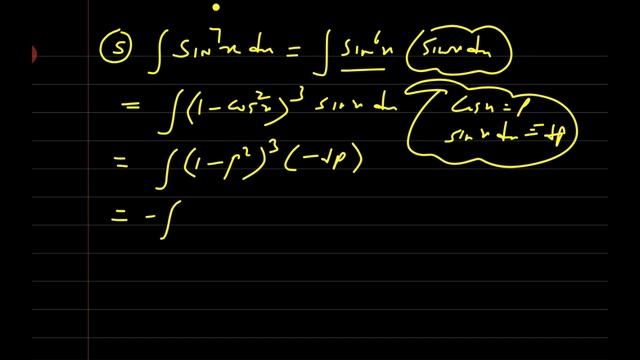 ⑤ ∫ sin⁷x dx = ∫ sin⁶x (sinx dx)
= ∫ (1 - cos²x)³ sinx dx
cosx = p
sinx dx = -dp
= ∫ (1 - p²)³ (-dp)
= - ∫